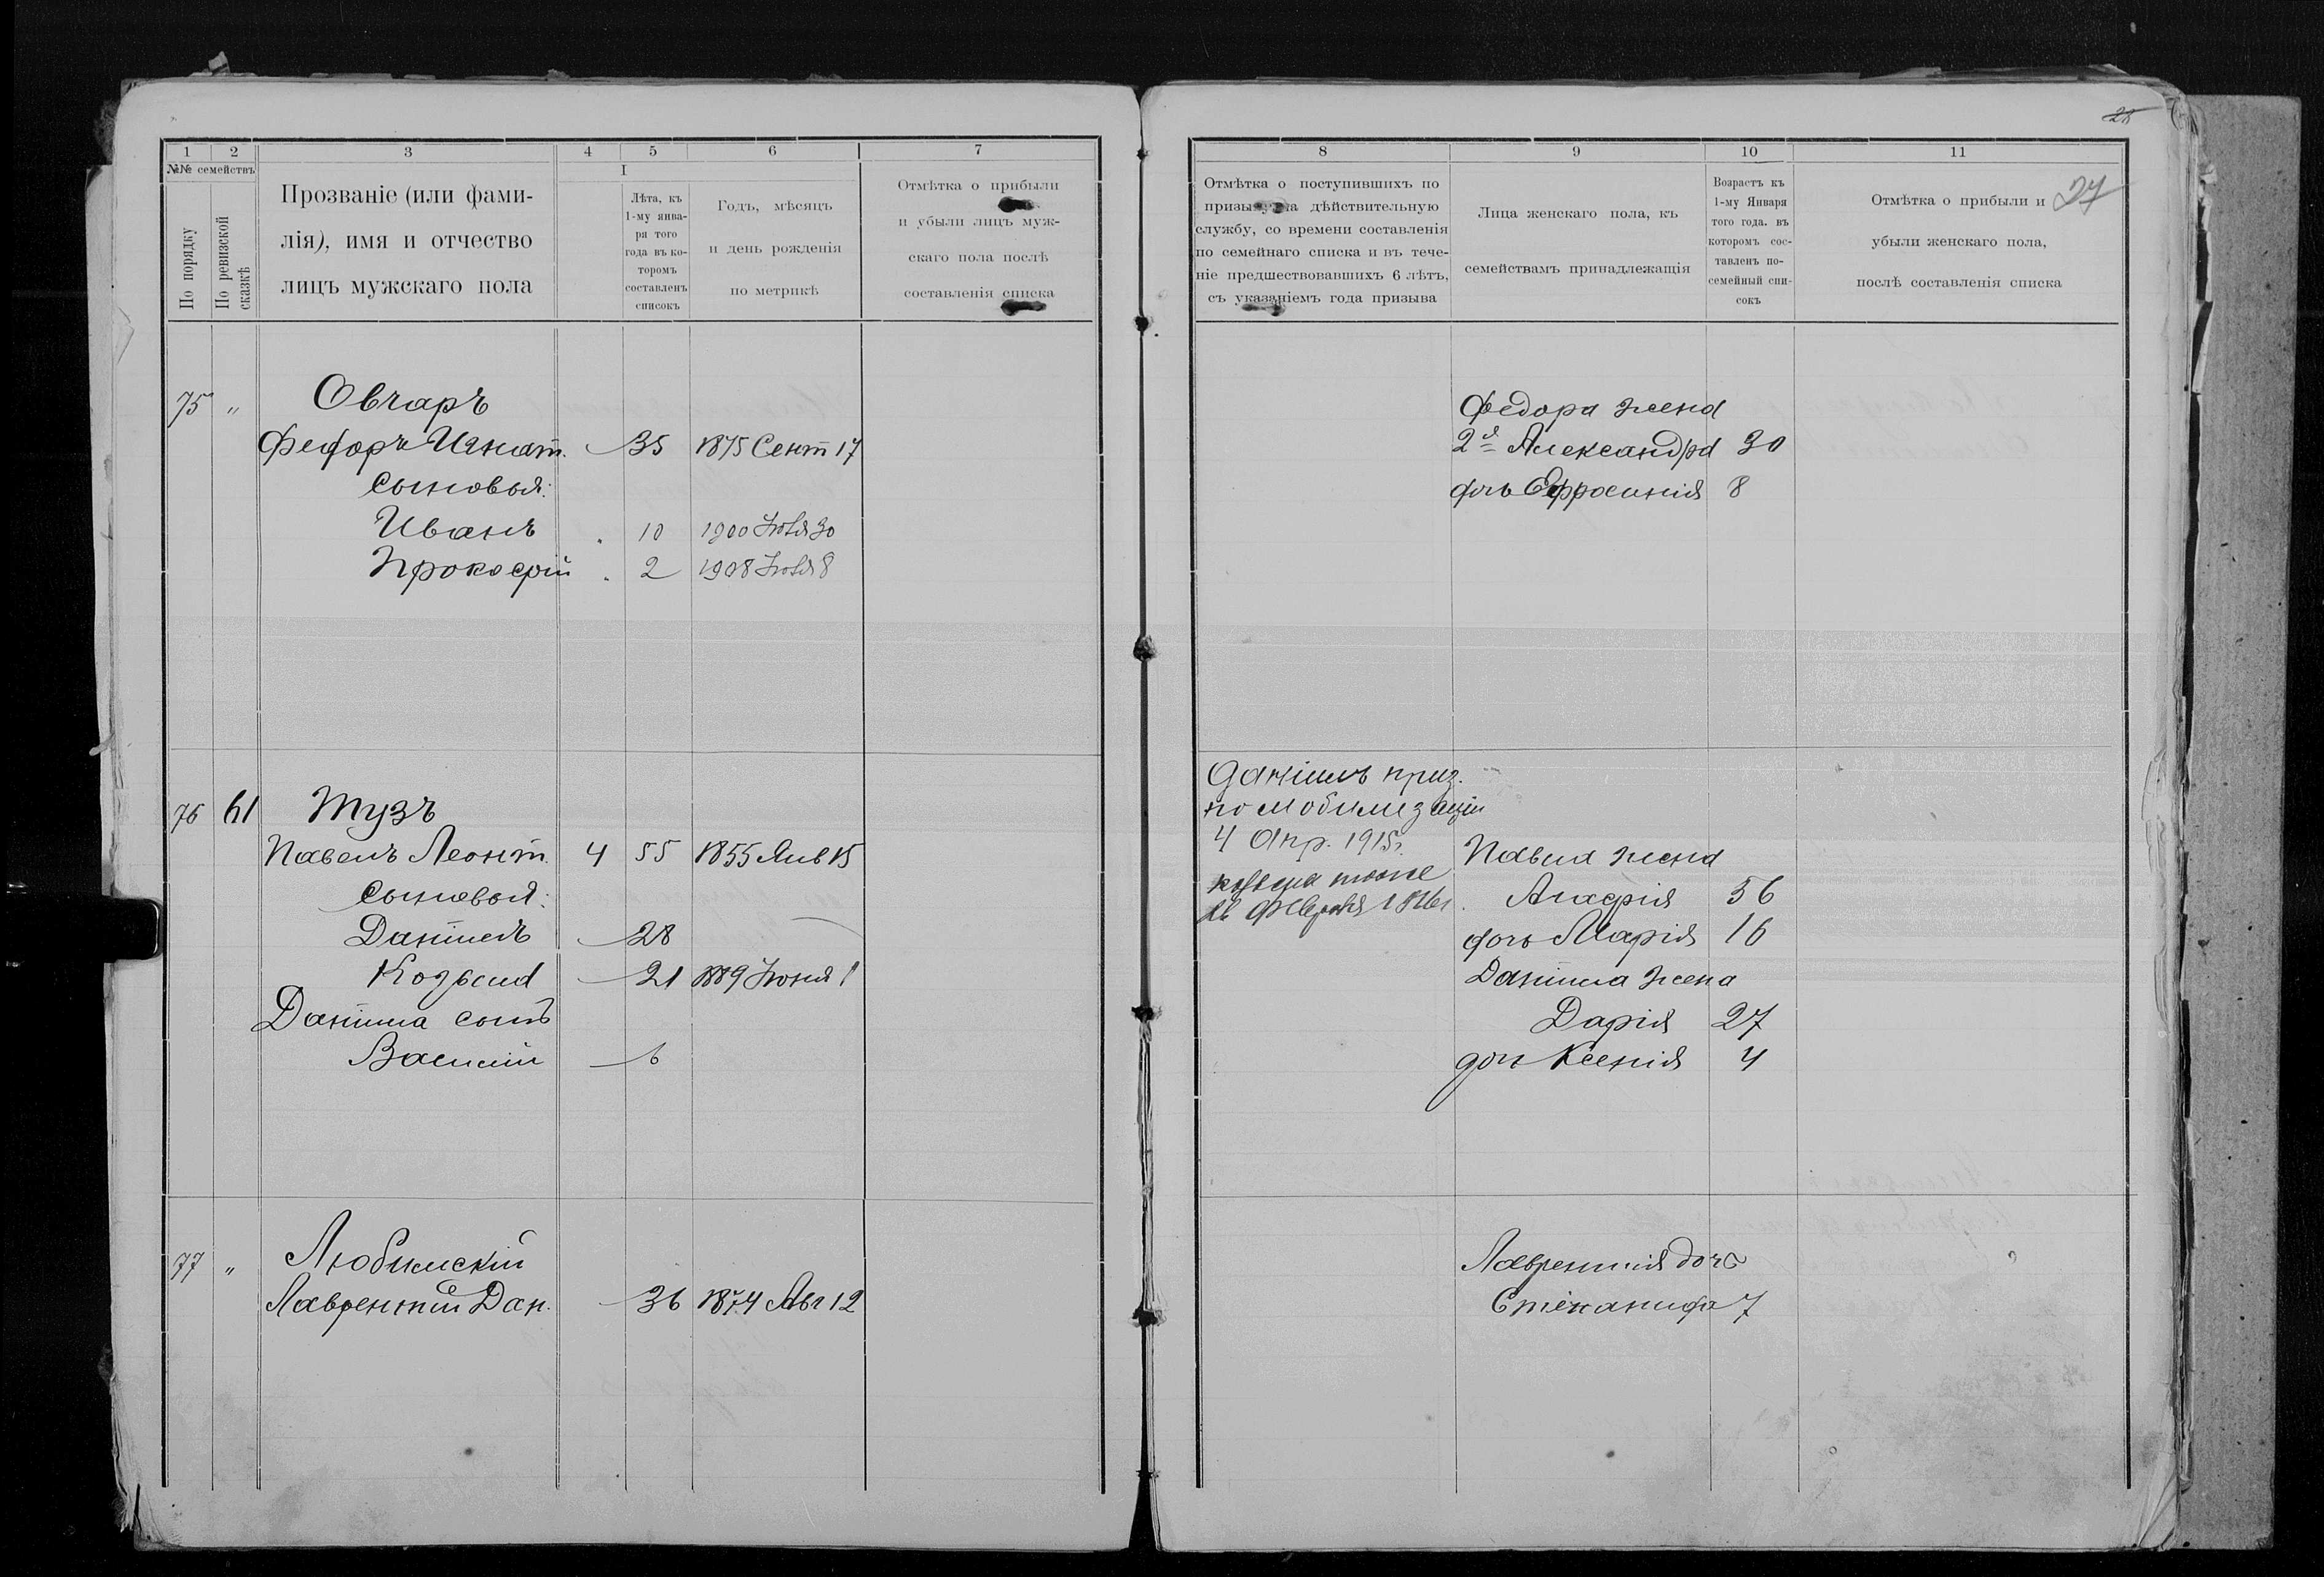 1
2
3
4
5
6
7
№№ семействъ
По порядку
По ревизской сказкѣ
Прозваніе (или фами-
лія), имя и отчество
лицъ мужскаго пола
I
Лѣта, къ
1-му янва-
ря того
года въ ко-
торомъ
составленъ
списокъ
Годъ, мѣсяцъ
и день рожденія
по метрикѣ
Отмѣтка о прибыли
и убыли лицъ муж-
скаго пола послѣ
составленія списка
75 " Овчаръ
Федоръ Игнат. 35 1875 Сент 17
сыновья:
Иванъ " 10 1900 Іюля 30
Прокофій " 2 1908 Іюля 8
76 61 Тузъ
Павелъ Леонт. 4 55 1855 Янв 15
сыновья:
Даніилъ 28
Козьма 21 1889 Іюня 1
Даніила сынъ
Василій 6
77 " Любимскій
Лаврентій Дан. 36 1874 Авг 12
8
9
10
11
27
Отмѣтка о поступившихъ по
призыву на дѣйствительную
службу, со времени составленія
по семейнаго списка и въ тече-
ніе предшествовавшихъ 6 лѣтъ,
съ указаніемъ года призыва
Лица женскаго пола, къ
семействамъ принадлежащія
Возрастъ къ
1-му Января
того года. въ
которомъ сос-
тавленъ по-
семейный спи-
сокъ
Отмѣтка о прибыли и
убыли женскаго пола,
послѣ составленія списка
Федора жена
2я Александра 30
дочь Ефросинія 8
Даніилъ приз.
по мобилизаціи
4 Апр. 1915г.
Козьма тоже
Февраля
Павла жена
Агафія 56
дочь Марія 16
Даніила жена
Дарія 27
дочь Ксенія 4
Лаврентія дочь
Степанида 7